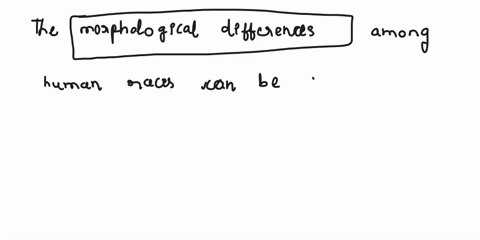 The morphological differences among
human races can be